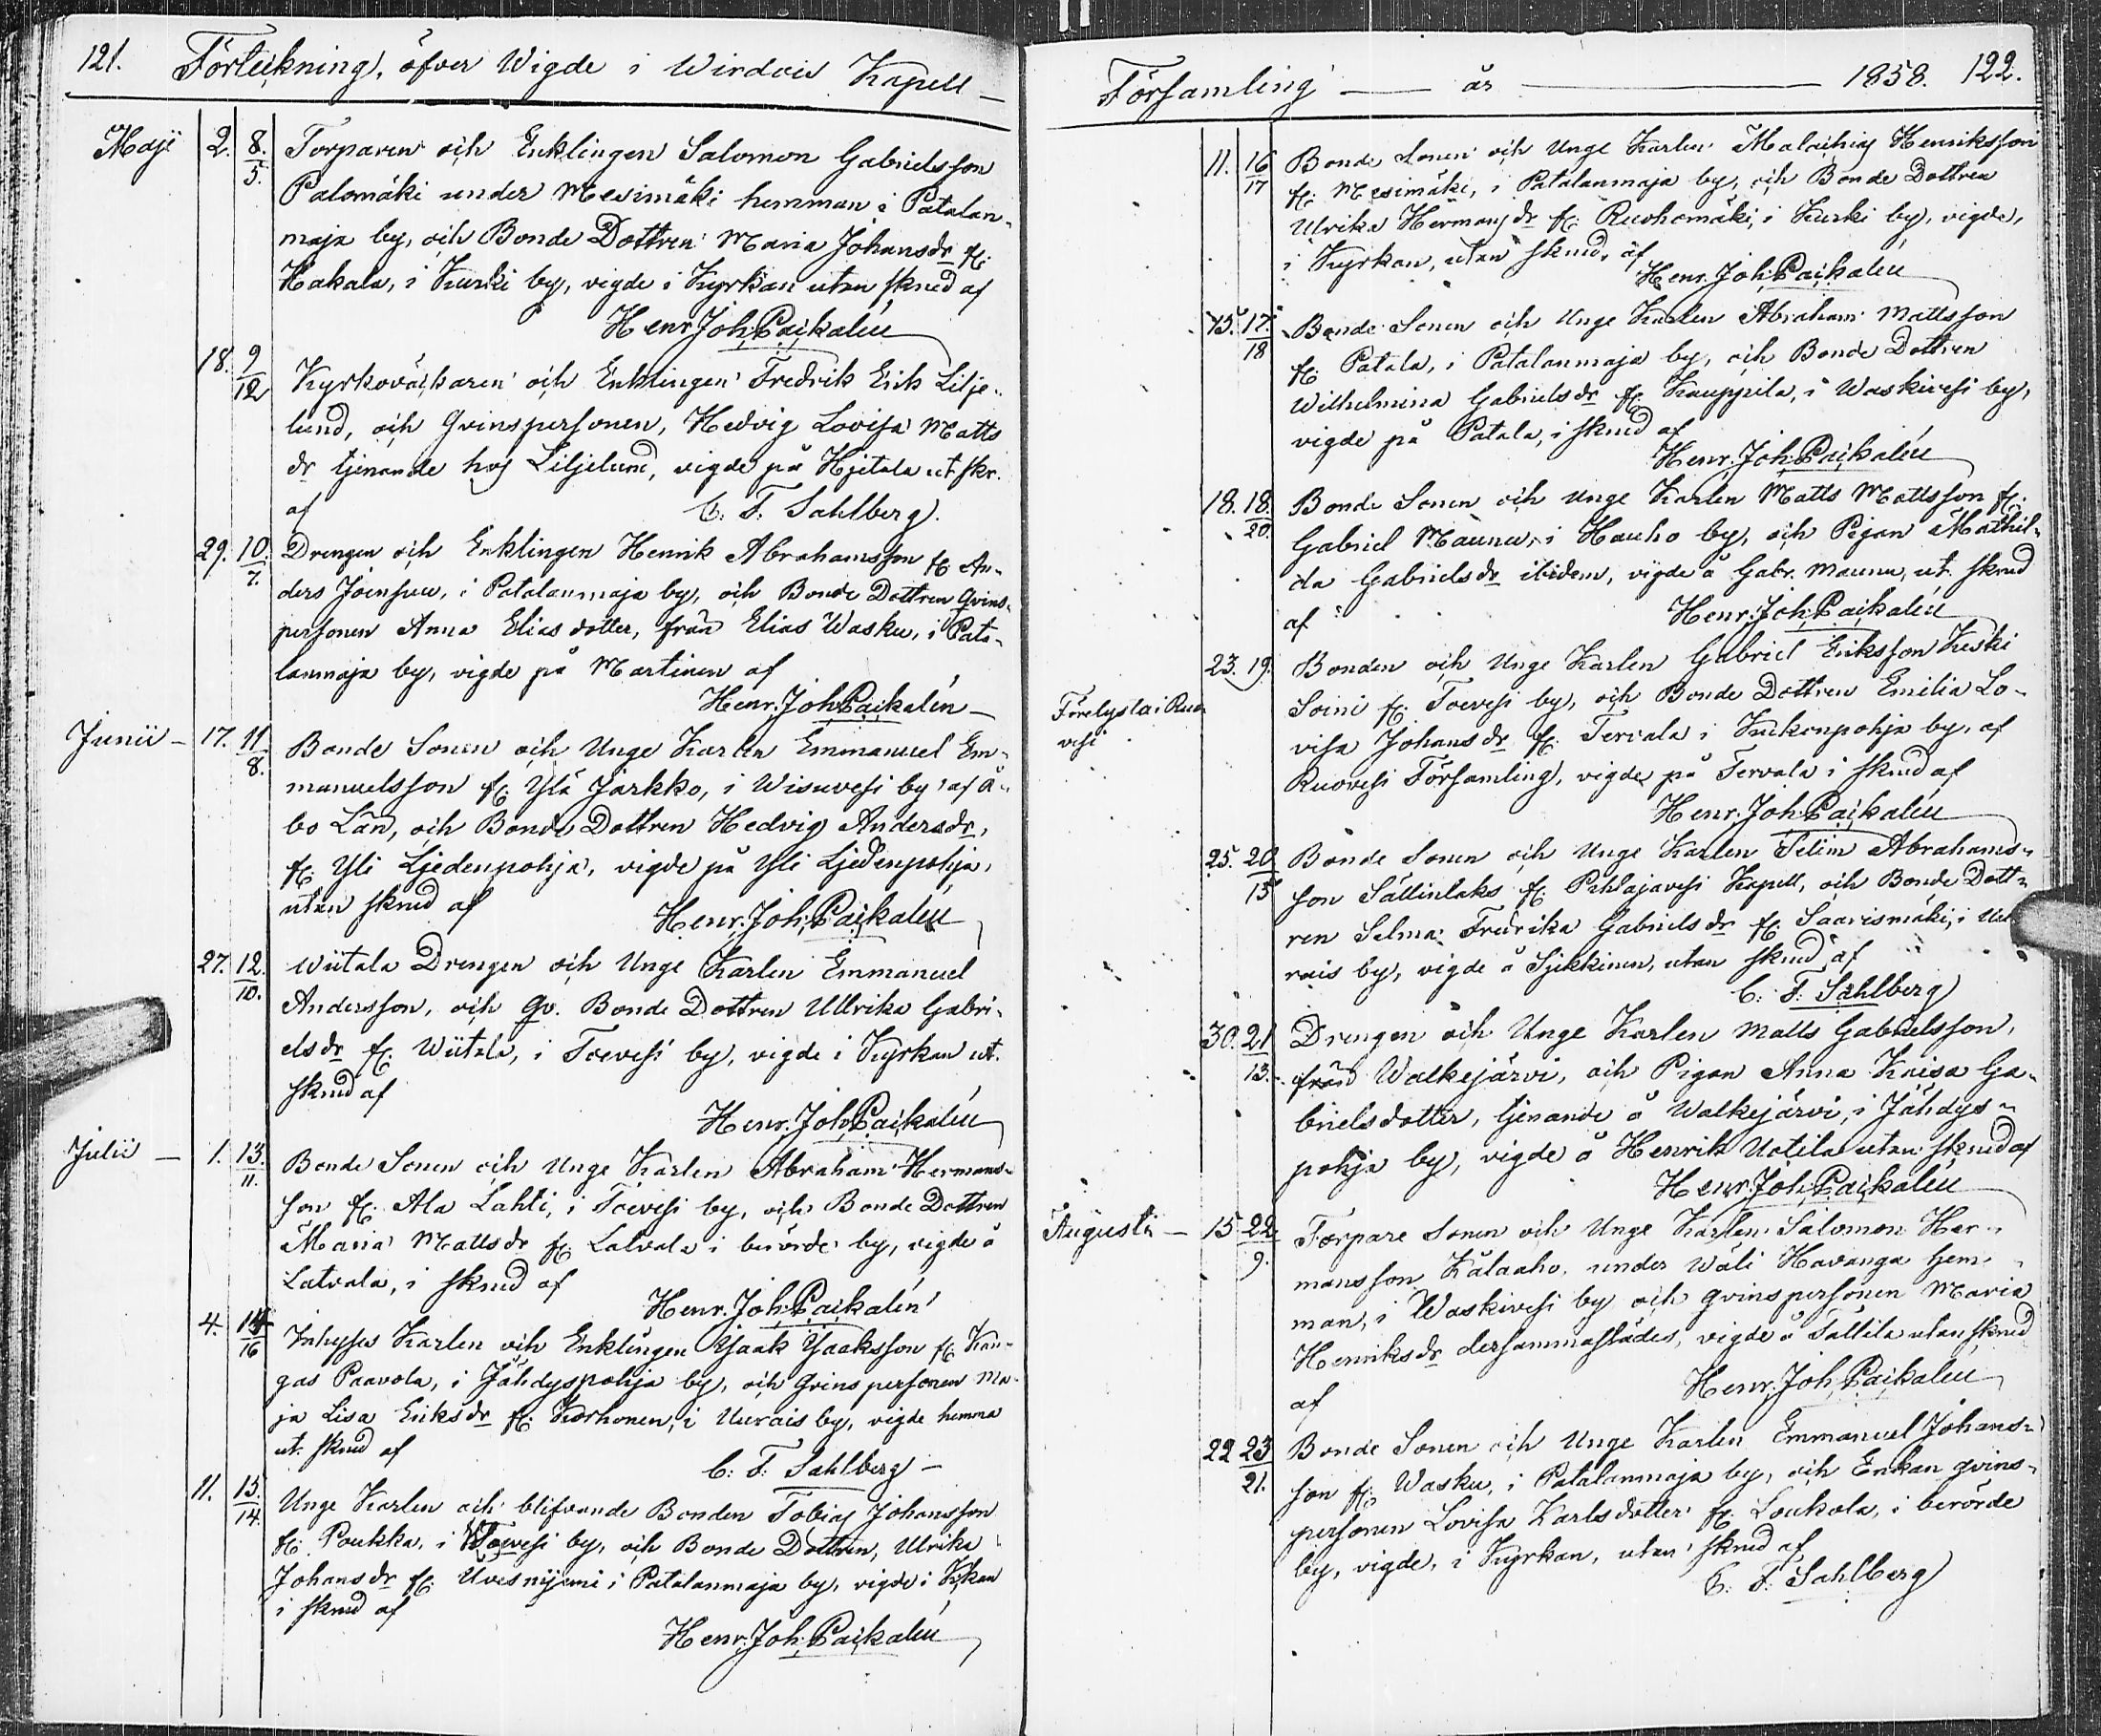 121. Förteckning, öfver Wigde i Wirdois Kapell
Maji 2. 8./5. Torparen och Enklingen Salomon Gabrielsson
Palomäki under Mesimäki hemman i Patalan-
maja by, och Bonde Dottren Maria Johansdr fr.
Hakala, i Kurki by, vigde i Kyrkan utan skrud af
Henr. Joh. Paikalén
18. 9/12 Kyrkoväktaren och Enklingen Fredrik Erik Lilje-
lund, och Qvinspersonen, Hedvig Lovisa Matts
dr tjenande hos Liljelund, vigde på Hjitala ut skr.
af C. F. Sahlberg.
29. 10./7. Drengen och Enklingen Henrik Abrahamsson fr An-
ders Joensuu, i Patalanmaja by, och Bonde Dottren Qvins-
personen Anna Eliasdotter, från Elias Wasku, i Pata-
lanmaja by, vigde på Martinen af
Henr. Joh. Paikalén
Junii 17. 11/8. Bonde Sonen och Unge Karlen Emmanuel Em-
manuelsson fr. Ylä Jarkko, i Wisuvesi by af Å-
bo Län, och Bonde Dottren Hedvig Andersdr,
fr. Yli Ljedenpohja, vigde på Yli Ljedenpohja,
utan skrud af Henr. Joh. Paikalén
27. 12./10. Wiitala Drengen och Unge Karlen Emmanuel
Andersson, och Qv. Bonde Dottren Ullrika Gabri-
elsdr fr. Wiitala, i Toevesi by, vigde i Kyrkan ut.
skrud af
Henr. Joh. Paikalén
Julii 1. 13./11. Bonde Sonen och Unge Karlen Abraham Hermans-
son fr. Ala Lahti, i Toevesi by, och Bonde Dottren
Maria Mattsdr fr. Latvala i berörde by, vigde å
Latvala, i skrud af
Henr. Joh. Paikalén
4. 14/16 Inhyses Karlen och Enklingen Isaak Isaaksson fr. Kan-
gas Paavola, i Jähdyspohja by, och Qvinspersonen Ma-
ja Lisa Eriksdr fr. Korhonen, i Uurais by, vigde hemma
ut. skrud af
C. F. Sahlberg
11. 15./14. Unge Karlen och blifvande Bonden Tobias Johansson
fr. Poukka, i Toevesi by, och Bonde Dottren, Ulrika
Johansdr fr. Uvesnijemi i Patalanmaja by, vigde i Kykan
i skrud af
Henr. Joh. Paikalén
Församling år 1858. 122.
11. 16/17 Bonde Sonen och Unge Karlen Malachias Henriksson
fr. Mesimäki, i Patalanmaja by, och Bonde Dottren
Ulrika Hermansdr fr. Ruohomäki, i Kurki by, vigde,
i Kyrkan, utan skrud, af
Henr. Joh. Paikalén
15. 17./18 Bonde Sonen och Unge Karlen Abraham Mattsson
fr. Patala, i Patalanmaja by, och Bonde Dottren
Wilhelmina Gabrielsdr fr. Kauppila, i Waskivesi by,
vigde på Patala, i skrud af
Henr. Joh. Paikalén
18. 18./20. Bonde Sonen och Unge Karlen Matts Mattsson fr.
Gabriel Maunu, i Hauho by, och Pigan Mathil-
da Gabrielsdr ibidem, vigde å Gabr. Maunu, ut. skrud
af Henr. Joh. Paikalén
23. 19. Bonden och Unge Karlen Gabriel Eriksson Keski
Soini fr. Toevesi by, och Bonde Dottren Emilia Lo-
Förelysta i Ruo-
vesi
visa Johansdr fr. Tervala i Kukonpohja by, af
Ruovesi Församling, vigde på Tervala i skrud af
Henr. Joh. Paikalén
25. 20/15 Bonde Sonen och Unge Karlen Felim Abrahams-
son Sällinlaks fr. Pihlajavesi Kapell, och Bonde Dott-
ren Selma Fredrika Gabrielsdr fr. Saarismäki, i Uu-
rais by, vigde å Sjikkinen, utan skrud af
C. F. Sahlberg
30. 21/13. Drengen och Unge Karlen Matts Gabrielsson,
från Walkejärvi, och Pigan Anna Kaisa Ga-
brielsdotter, tjenande å Walkejärvi, i Jähdys-
pohja by, vigde å Henrik Uotila utan skrud af
Henr. Joh. Paikalén
Augusti 15 22/9. Torpare Sonen och Unge Karlen Salomon Her-
mansson Kälaaho, under Wäli Havanga hem-
man, i Waskivesi by och qvinspersonen Maria
Henriksdr dersammastädes, vigde å Tallila utan skrud
af Henr. Joh. Paikalén
22 23/21. Bonde Sonen och Unge Karlen Emmanuel Johans-
son fr. Wasku, i Patalanmaja by, och Enkan qvins-
personen Lovisa Karlsdotter fr. Loukola, i berörde
by, vigde, i Kyrkan, utan skrud af
C. F. Sahlberg